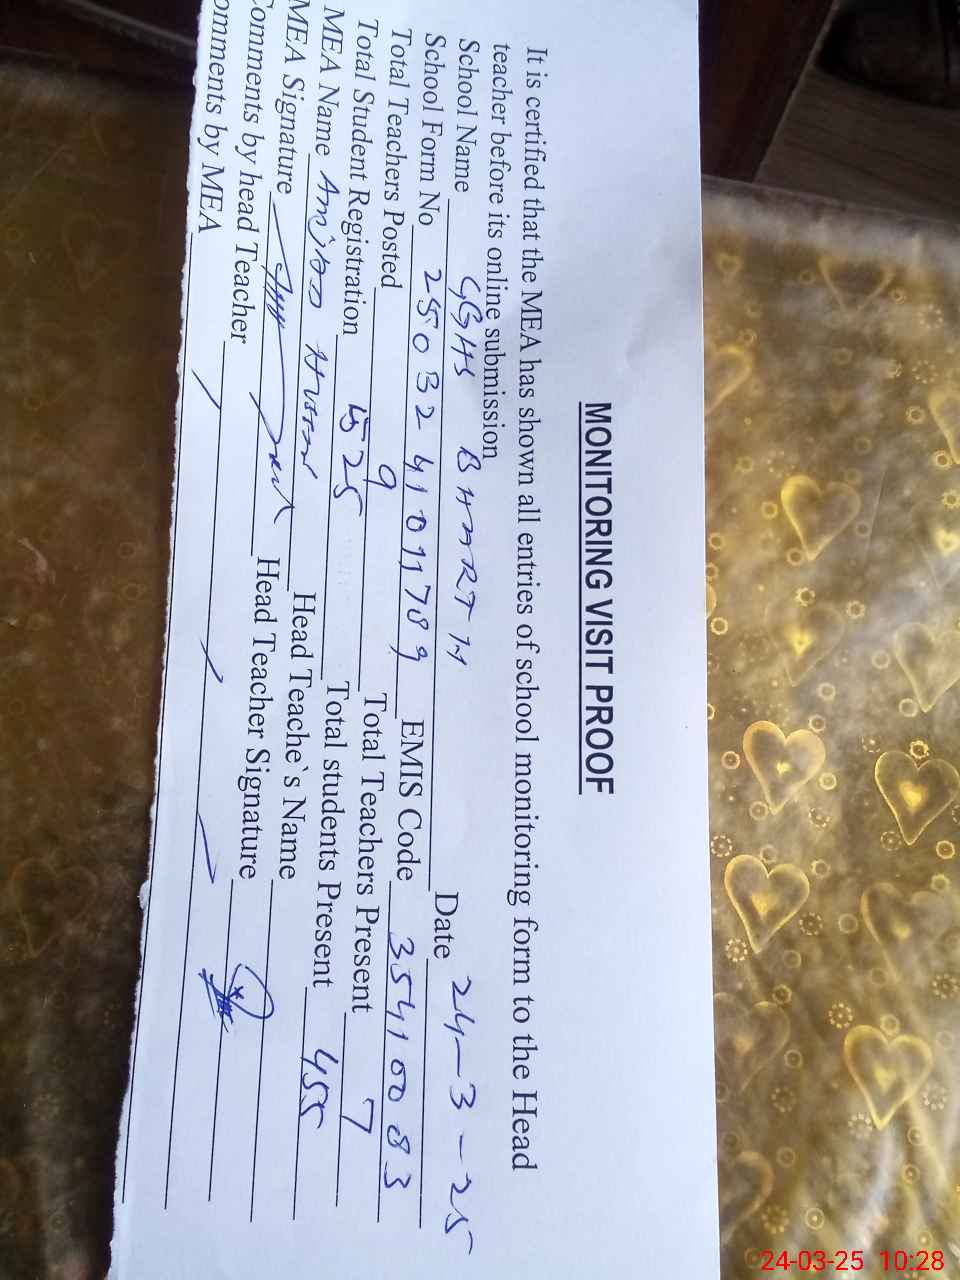 MONITORING VISIT PROOF
It is certified that the MEA has shown all entries of school monitoring form to the Head
teacher before its online submission
School Name GGHS Date 24-3-25
School Form No 2503241011789 EMIS Code 35410083
Total Teachers Posted 9 Total Teachers Present 7
Total Student Registration 525 Total students Present 455
MEA Name Head Teache`s Name
MEA Signature Head Teacher Signature
Comments by head Teacher
omments by MEA
24-03-25 10:28